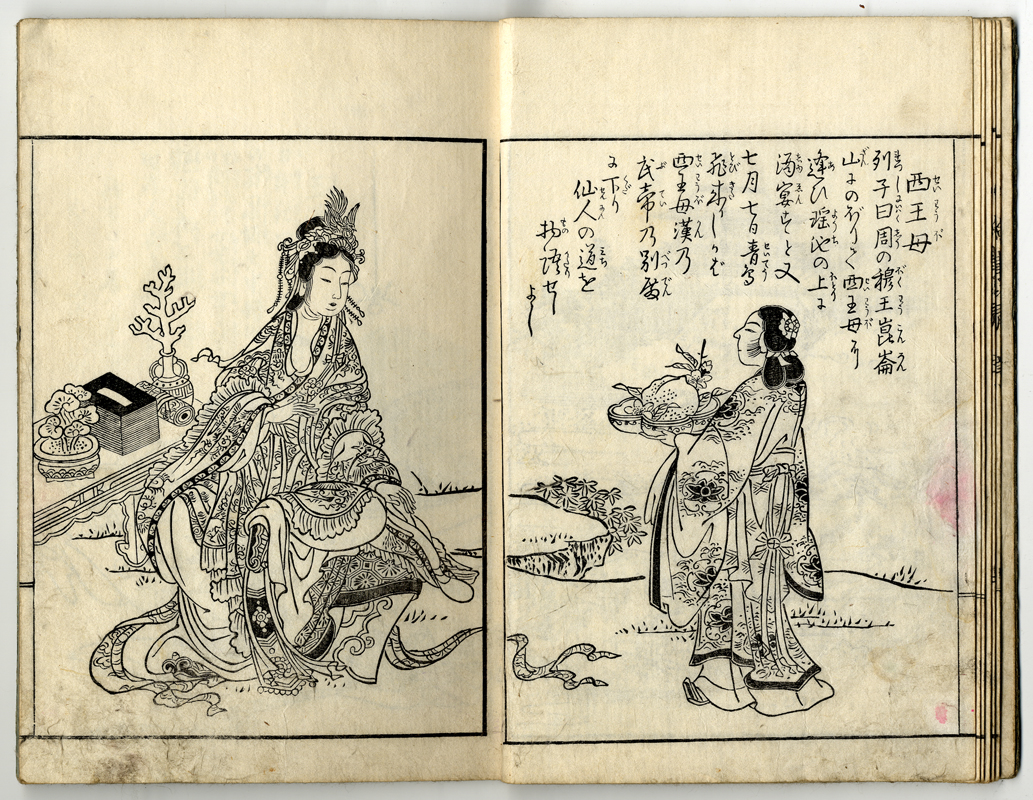 西王母
列子曰周の穆王崑崙
山にのぼりて西王母に
逢ひ瑶池の上に
酒宴すと又
七月七日青鳥
飛来りしかば
西王母漢乃
武帝乃別殿
に下り
仙人の道を
物語せ